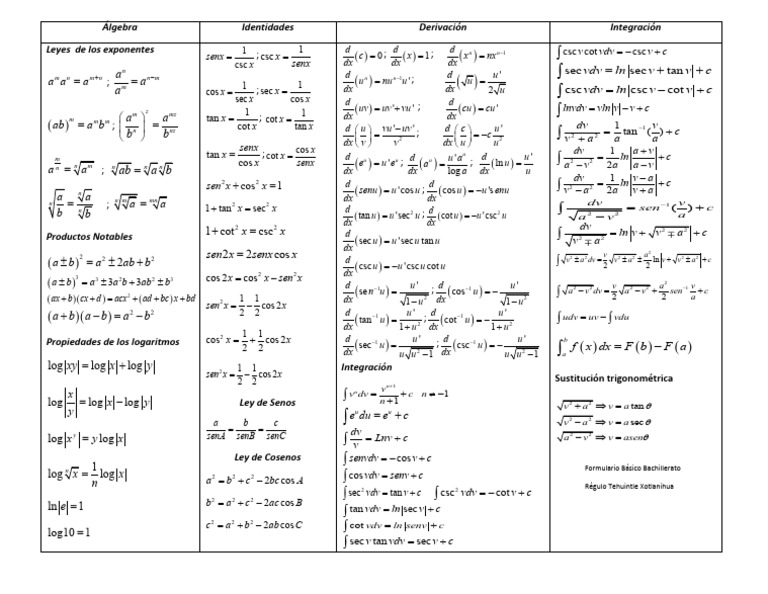 Álgebra
Leyes de los exponentes
a^m a^n = a^{m+n} ; a^n/a^m = a^{n-m}
(ab)^m = a^m b^m ; (a^m/b^n)^z = a^{mz}/b^{nz}
a^{m/n} = ⁿ√a^m ; ⁿ√ab = ⁿ√a ⁿ√b
ⁿ√(a/b) = ⁿ√a/ⁿ√b ; ᵐ√ⁿ√a = ᵐⁿ√a
Productos Notables
(a ± b)² = a² ± 2ab + b²
(a ± b)³ = a³ ± 3a²b + 3ab² ± b³
(ax + b)(cx + d) = acx² + (ad + bc)x + bd
(a + b)(a − b) = a² − b²
Propiedades de los logaritmos
log|xy| = log|x| + log|y|
log|x/y| = log|x| − log|y|
log|x^y| = y log|x|
log ⁿ√x = 1/n log|x|
ln|e| = 1
log10 = 1
Identidades
senx = 1/csc x ; csc x = 1/senx
cos x = 1/sec x ; sec x = 1/cos x
tan x = 1/cot x ; cot x = 1/tan x
tan x = senx/cos x ; cot x = cos x/senx
sen²x + cos² x = 1
1 + tan² x = sec² x
1 + cot² x = csc² x
sen2x = 2senx cos x
cos 2x = cos² x − sen²x
sen²x = 1/2 − 1/2 cos 2x
cos² x = 1/2 + 1/2 cos 2x
sen²x = 1/2 − 1/2 cos 2x
Ley de Senos
a/senA = b/senB = c/senC
Ley de Cosenos
a² = b² + c² − 2bc cos A
b² = a² + c² − 2ac cos B
c² = a² + b² − 2ab cos C
Derivación
d/dx (c) = 0 ; d/dx (x) = 1 ; d/dx (x^n) = nx^{n−1}
d/dx (u^n) = nu^{n−1}u' ; d/dx (√u) = u'/2√u
d/dx (uv) = uv' + vu' ; d/dx (cu) = cu'
d/dx (u/v) = vu' − uv'/v² ; d/dx (c/u) = −c u'/u²
d/dx (e^u) = u'e^u ; d/dx (a^u) = u'a^u/log a ; d/dx (ln u) = u'/u
d/dx (senu) = u'cos u ; d/dx (cos u) = −u'senu
d/dx (tan u) = u'sec² u ; d/dx (cot u) = −u'csc² u
d/dx (sec u) = u'sec u tan u
d/dx (csc u) = −u'csc u cot u
d/dx (sen⁻¹u) = u'/√1−u² ; d/dx (cos⁻¹ u) = − u'/√1−u²
d/dx (tan⁻¹ u) = u'/1+u² ; d/dx (cot⁻¹ u) = − u'/1+u²
d/dx (sec⁻¹ u) = u'/u√u²−1 ; d/dx (csc⁻¹ u) = − u'/u√u²−1
Integración
∫v^n dv = v^{n+1}/n+1 + c n ≠ −1
∫e^u du = e^u + c
∫dv/v = Lnv + c
∫senvdv = −cos v + c
∫cos vdv = senv + c
∫sec² vdv = tan v + c ∫csc² vdv = −cot v + c
∫tan vdv = ln|sec v| + c
∫cot vdv = ln|senv| + c
∫sec v tan vdv = sec v + c
Integración
∫csc v cot vdv = −csc v + c
∫sec vdv = ln|sec v + tan v| + c
∫csc vdv = ln|csc v − cot v| + c
∫lnvdv = vln|v| − v + c
∫dv/v² + a² = 1/a tan⁻¹(v/a) + c
∫dv/a² − v² = 1/2a ln|a + v/a − v|
∫dv/v² − a² = 1/2a ln|v − a/v + a|
∫dv/√a² − v² = sen⁻¹(v/a) + c
∫dv/√v² ∓ a² = ln|v + √v² ∓ a²| + c
∫√v² ± a² dv = v/2 √v² ± a² ± a²/2 ln|v + √v² ± a²| + c
∫√a² − v² dv = v/2 √a² − v² + a²/2 sen⁻¹ v/a + c
∫udv = uv − ∫vdu
∫_a^b f(x)dx = F(b) − F(a)
Sustitución trigonométrica
√v² + a² ⇒ v = a tan θ
√v² − a² ⇒ v = a sec θ
√a² − v² ⇒ v = asenθ
Formulario Básico Bachillerato
Régulo Tehuintle Xotlanihua